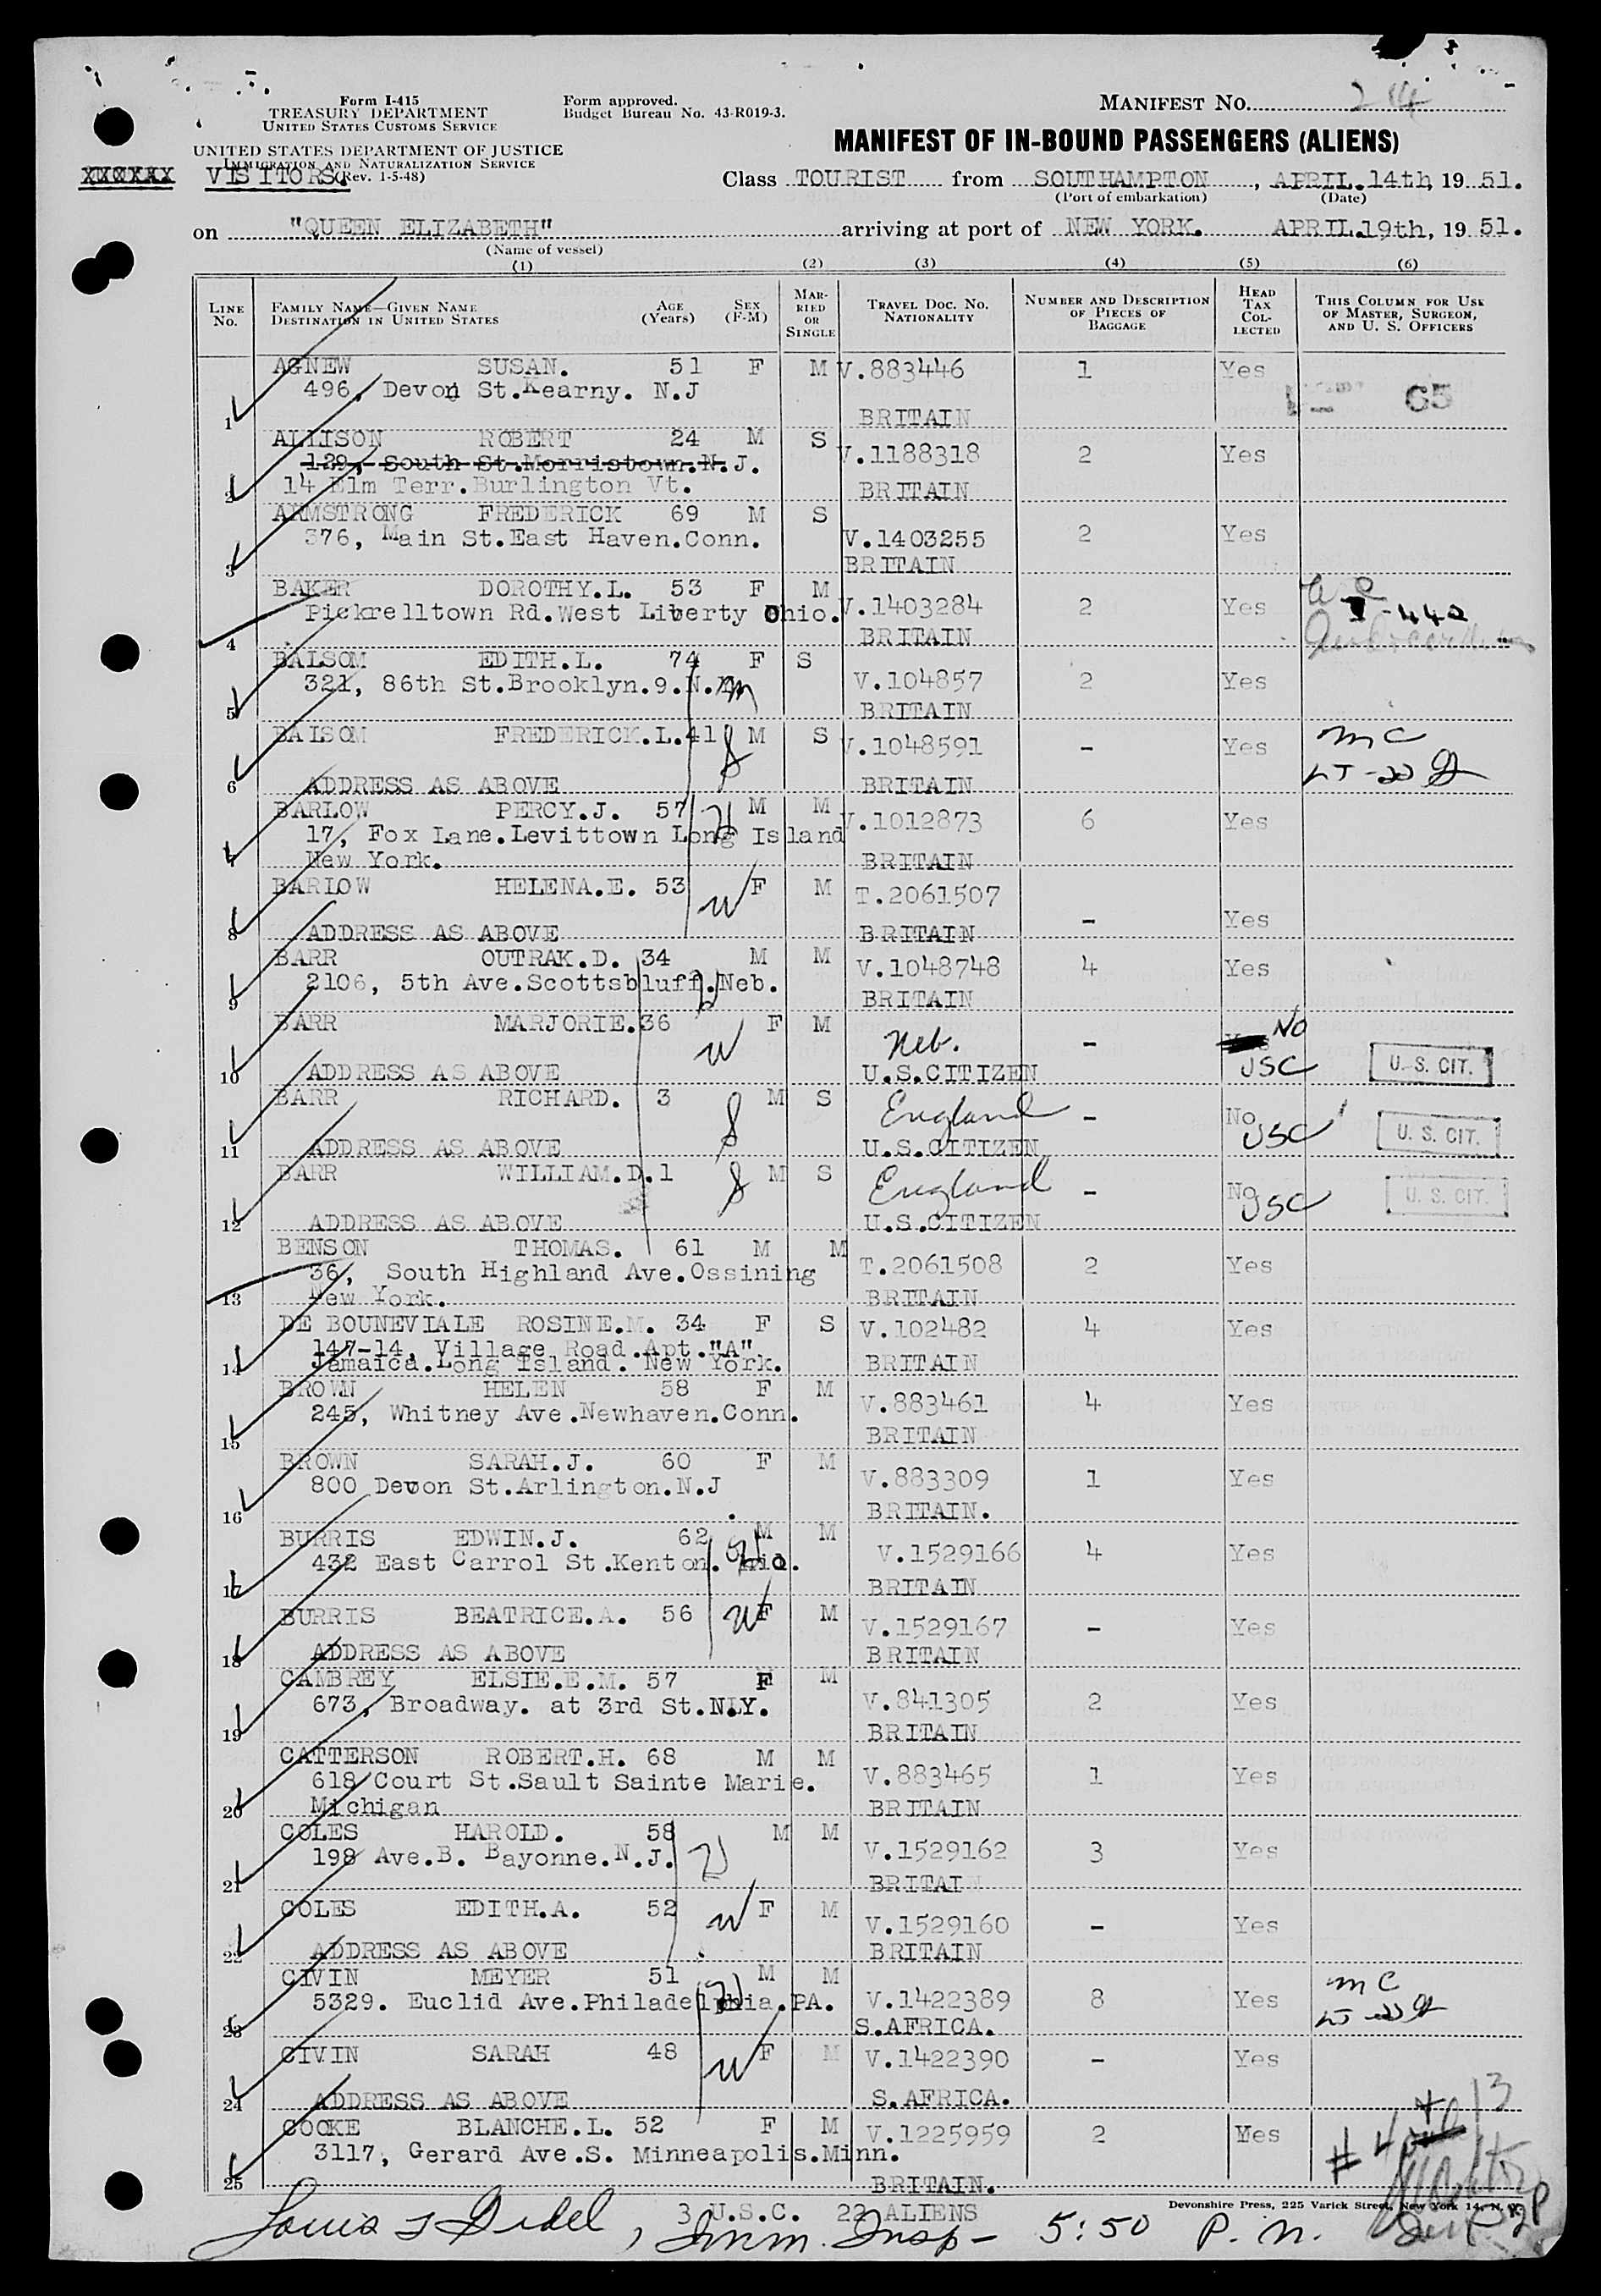 Form I-415
TREASURY DEPARTMENT
UNITED STATES CUSTOMS SERVICE
UNITED STATES DEPARTMENT OF JUSTICE
IMMIGRATION AND NATURALIZATION SERVICE
(Rev. 1-5-48)
XXXXXX VISITORS.
Form approved.
Budget Bureau No. 43-R019-3.
MANIFEST NO. 24
MANIFEST OF IN-BOUND PASSENGERS (ALIENS)
Class TOURIST from SOUTHAMPTON, APRIL.14th, 19 51.
(Port of embarkation) (Date)
on "QUEEN ELIZABETH" arriving at port of NEW YORK. APRIL.19th, 19 51.
(Name of vessel)
(1) (2) (3) (4) (5) (6)
LINE NO. FAMILY NAME—GIVEN NAME DESTINATION IN UNITED STATES AGE (Years) SEX (F-M) MARRIED OR SINGLE TRAVEL DOC. NO. NATIONALITY NUMBER AND DESCRIPTION OF PIECES OF BAGGAGE HEAD TAX COLLECTED THIS COLUMN FOR USE OF MASTER, SURGEON, AND U. S. OFFICERS
AGNEW SUSAN. 51 F M V.883446 1 Yes
496, Devon St.Kearny. N.J 65
1 BRITAIN
ALLISON ROBERT 24 M S V.1188318 2 Yes
129, South St.Morristown.N.J.
2 14 Elm Terr.Burlington Vt. BRITAIN
ARMSTRONG FREDERICK 69 M S
376, Main St.East Haven.Conn. V.1403255 2 Yes
3 BRITAIN
BAKER DOROTHY.L. 53 F M
Pickrelltown Rd.West Liberty Ohio. V.1403284 2 Yes I-442
4 BRITAIN
BALSOM EDITH.L. 74 F S
321, 86th St.Brooklyn.9.N.Y. m V.104857 2 Yes
5 BRITAIN
BALSOM FREDERICK.L.41 M S V.1048591 - Yes mc
6 ADDRESS AS ABOVE BRITAIN
BARLOW PERCY.J. 57 M M V.1012873 6 Yes
17, Fox Lane.Levittown Long Island
7 New York. BRITAIN
BARLOW HELENA.E. 53 w F M T.2061507 - Yes
8 ADDRESS AS ABOVE BRITAIN
BARR OUTRAK.D. 34 M M V.1048748 4 Yes
9 2106, 5th Ave.Scottsbluff.Neb. BRITAIN
BARR MARJORIE.36 w F M Neb. - No
10 ADDRESS AS ABOVE U.S.CITIZEN USC U. S. CIT.
BARR RICHARD. 3 M S England - No
11 ADDRESS AS ABOVE U.S.CITIZEN USC U. S. CIT.
BARR WILLIAM.D.1 M S England - No
12 ADDRESS AS ABOVE U.S.CITIZEN USC U. S. CIT.
BENSON THOMAS. 61 M M T.2061508 2 Yes
36, South Highland Ave.Ossining
13 New York. BRITAIN
DE BOUNEVIALE ROSINE.M. 34 F S V.102482 4 Yes
147-14, Village Road.Apt."A"
14 Jamaica.Long Island. New York. BRITAIN
BROWN HELEN 58 F M V.883461 4 Yes
245, Whitney Ave.Newhaven.Conn.
15 BRITAIN
BROWN SARAH.J. 60 F M V.883309 1 Yes
800 Devon St.Arlington.N.J
16 BRITAIN.
BURRIS EDWIN.J. 62 M M V.1529166 4 Yes
432 East Carrol St.Kenton.
17 BRITAIN
BURRIS BEATRICE.A. 56 w F M V.1529167 - Yes
18 ADDRESS AS ABOVE BRITAIN
CAMBREY ELSIE.E.M. 57 F M V.841305 2 Yes
673, Broadway. at 3rd St.N.Y.
19 BRITAIN
CATTERSON ROBERT.H. 68 M M V.883465 1 Yes
618 Court St.Sault Sainte Marie.
20 Michigan BRITAIN
COLES HAROLD. 58 M M V.1529162 3 Yes
198 Ave.B. Bayonne.N.J.
21 BRITAI
COLES EDITH.A. 52 w F M V.1529160 - Yes
22 ADDRESS AS ABOVE BRITAIN
CIVIN MEYER 51 M M mc
5329. Euclid Ave.Philadelphia.PA. V.1422389 8 Yes
23 S.AFRICA.
CIVIN SARAH 48 w F M V.1422390 - Yes
24 ADDRESS AS ABOVE S.AFRICA.
COOKE BLANCHE.L. 52 F M V.1225959 2 Yes
3117, Gerard Ave.S. Minneapolis.Minn.
25 BRITAIN.
3 U.S.C. 22 ALIENS
Devonshire Press, 225 Varick Street, New York 14, N. Y.
Louis J Gidel, Imm. Insp- 5:50 P. M.